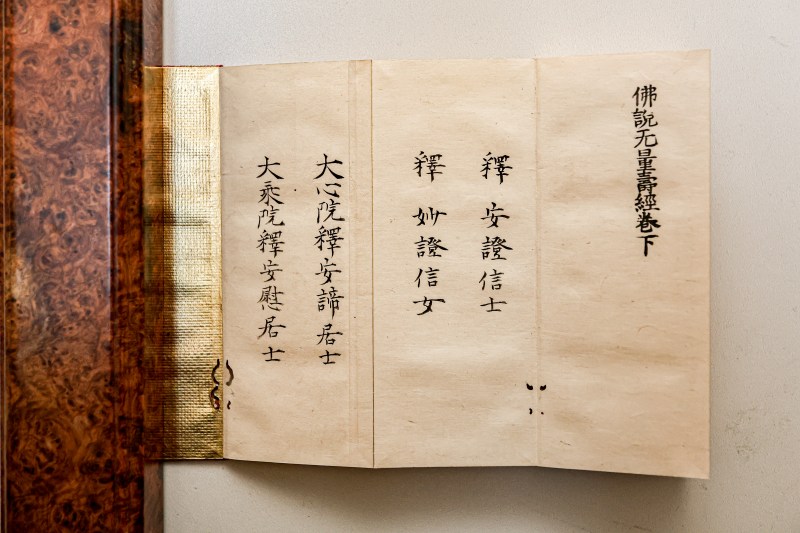 佛說无量壽經卷下
釋安證信士
釋妙證信女
大心院釋安諦居士
大乘院釋安慰居士